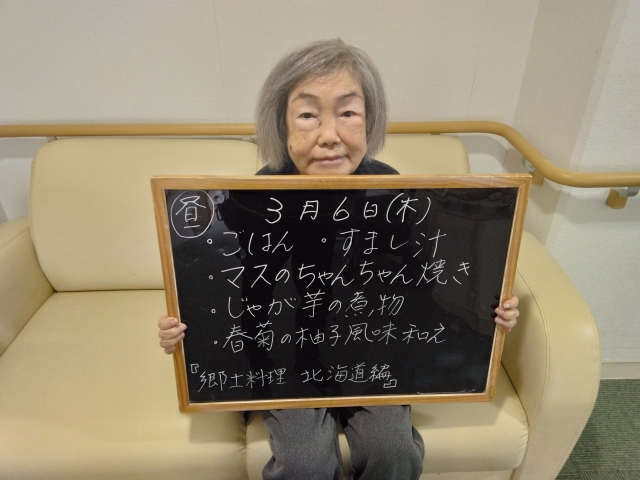 昼 3月6日(木)
・ごはん ・すまし汁
・マスのちゃんちゃん焼き
・じゃが芋の煮物
・春菊の柚子風味和え
『郷土料理 北海道編』